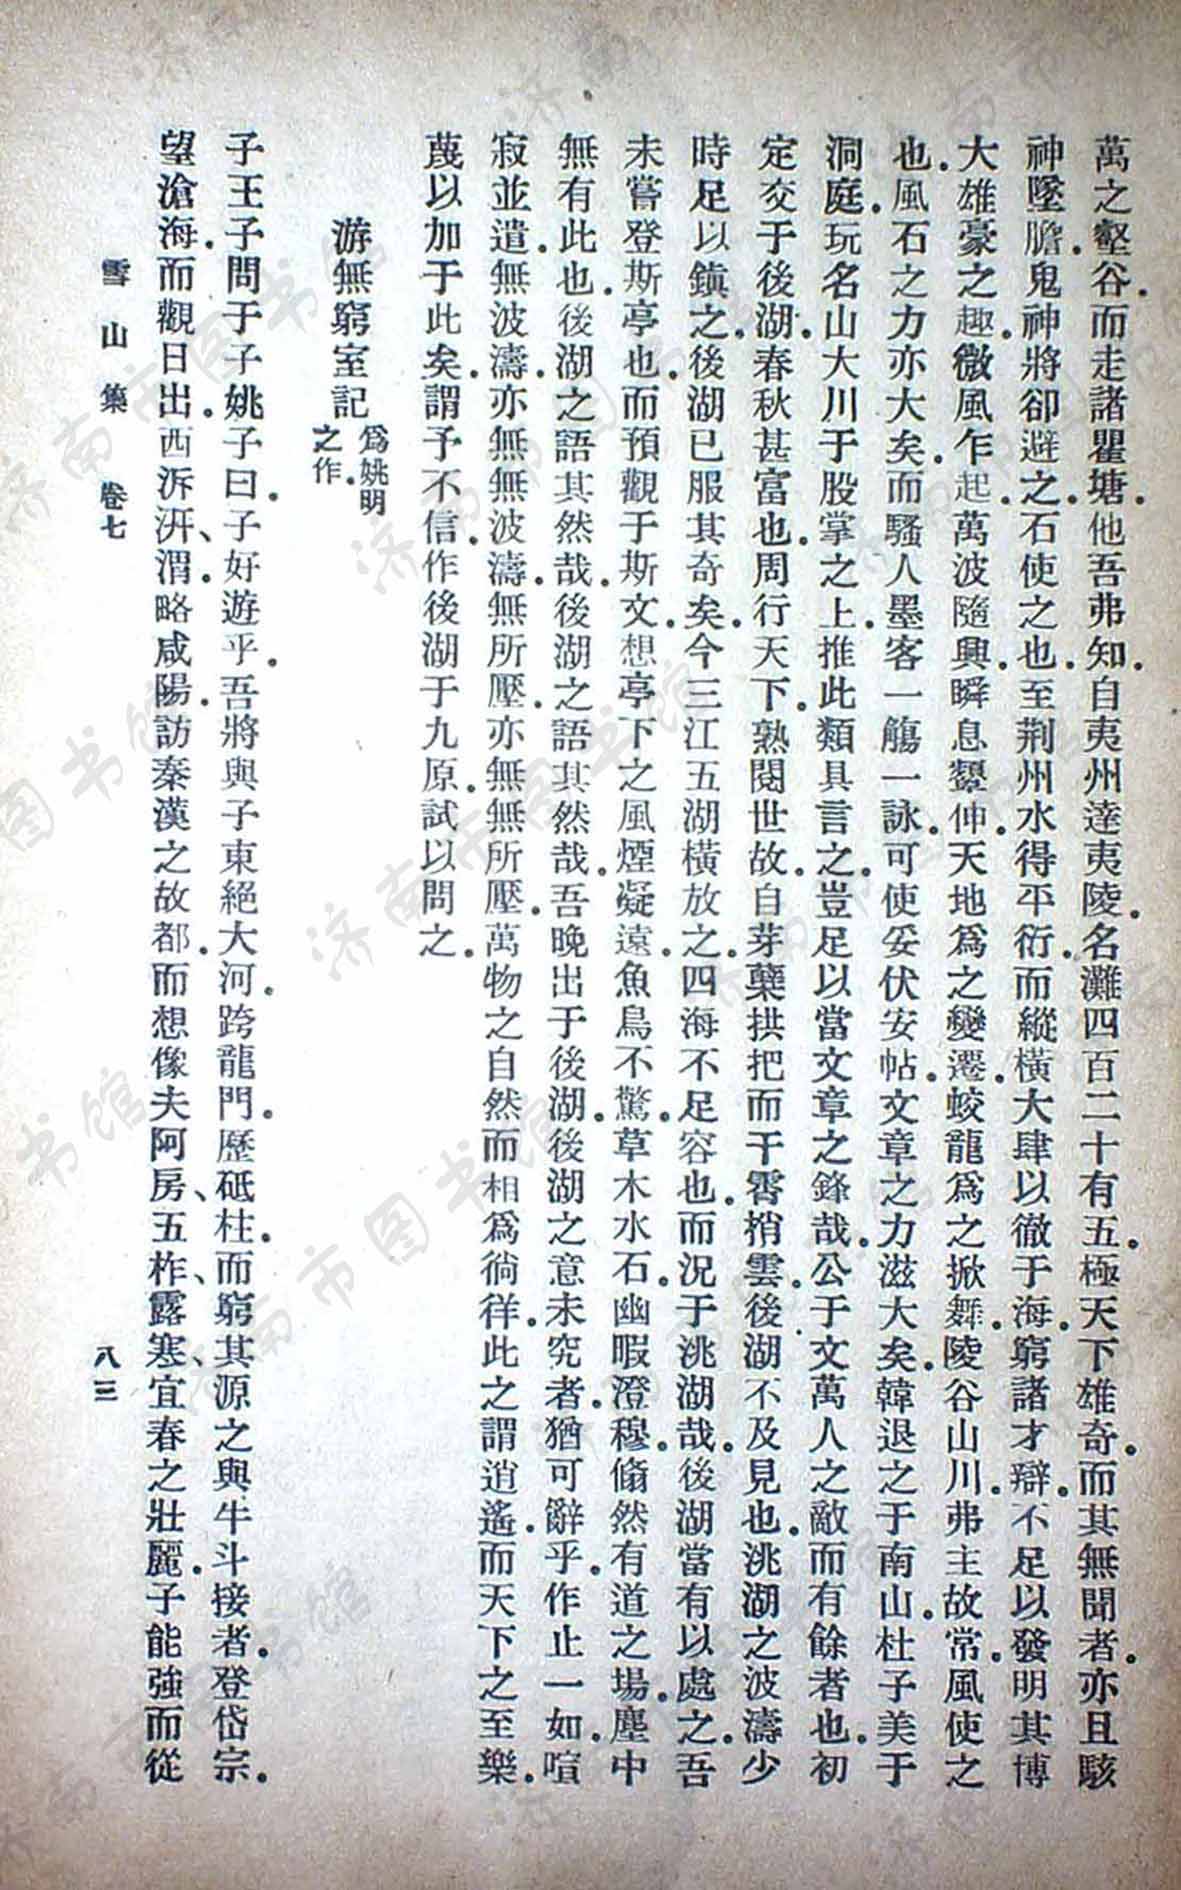 萬之壑谷。而走諸瞿塘。他吾弗知。自夷州達夷陵。名灘四百二十有五。極天下雄奇。而其無聞者。亦且駭
神墜膽。鬼神將卻避之。石使之也。至荆州水得平衍。而縱橫大肆以徹于海。窮諸才辯。不足以發明其博
大雄豪之趣。微風乍起。萬波隨興。瞬息顰伸。天地爲之變遷。蛟龍爲之掀舞。陵谷山川。弗主故常。風使之
也。風石之力亦大矣。而騷人墨客一觴一詠。可使妥伏安帖。文章之力滋大矣。韓退之于南山。杜子美于
洞庭。玩名山大川于股掌之上。推此類具言之。豈足以當文章之鋒哉。公于文萬人之敵而有餘者也。初
定交于後湖。春秋甚富也。周行天下。熟閱世故。自芽蘖拱把而干霄捎雲。後湖不及見也。洮湖之波濤少
時足以鎮之。後湖已服其奇矣。今三江五湖橫放之。四海不足容也。而況于洮湖哉。後湖當有以處之。吾
未嘗登斯亭也。而預觀于斯文。想亭下之風煙凝遠。魚鳥不驚。草木水石。幽暇澄穆。翛然有道之場。塵中
無有此也。後湖之語其然哉。後湖之語其然哉。吾晚出于後湖。後湖之意未究者。猶可辭乎。作止一如。喧
寂並遣。無波濤。亦無無波濤。無所壓。亦無無所壓。萬物之自然而相爲徜徉。此之謂逍遙。而天下之至樂。
蔑以加于此矣。謂予不信。作後湖于九原。試以問之。
游無窮室記 爲姚明之作。
子王子問于子姚子曰。子好遊乎。吾將與子東絕大河。跨龍門。歷砥柱。而窮其源之與牛斗接者。登岱宗。
望滄海。而觀日出。西泝汧、渭。略咸陽。訪秦漢之故都。而想像夫阿房、五柞、露寒、宜春之壯麗。子能強而從
雪山集 卷七 八三
济南市图书馆